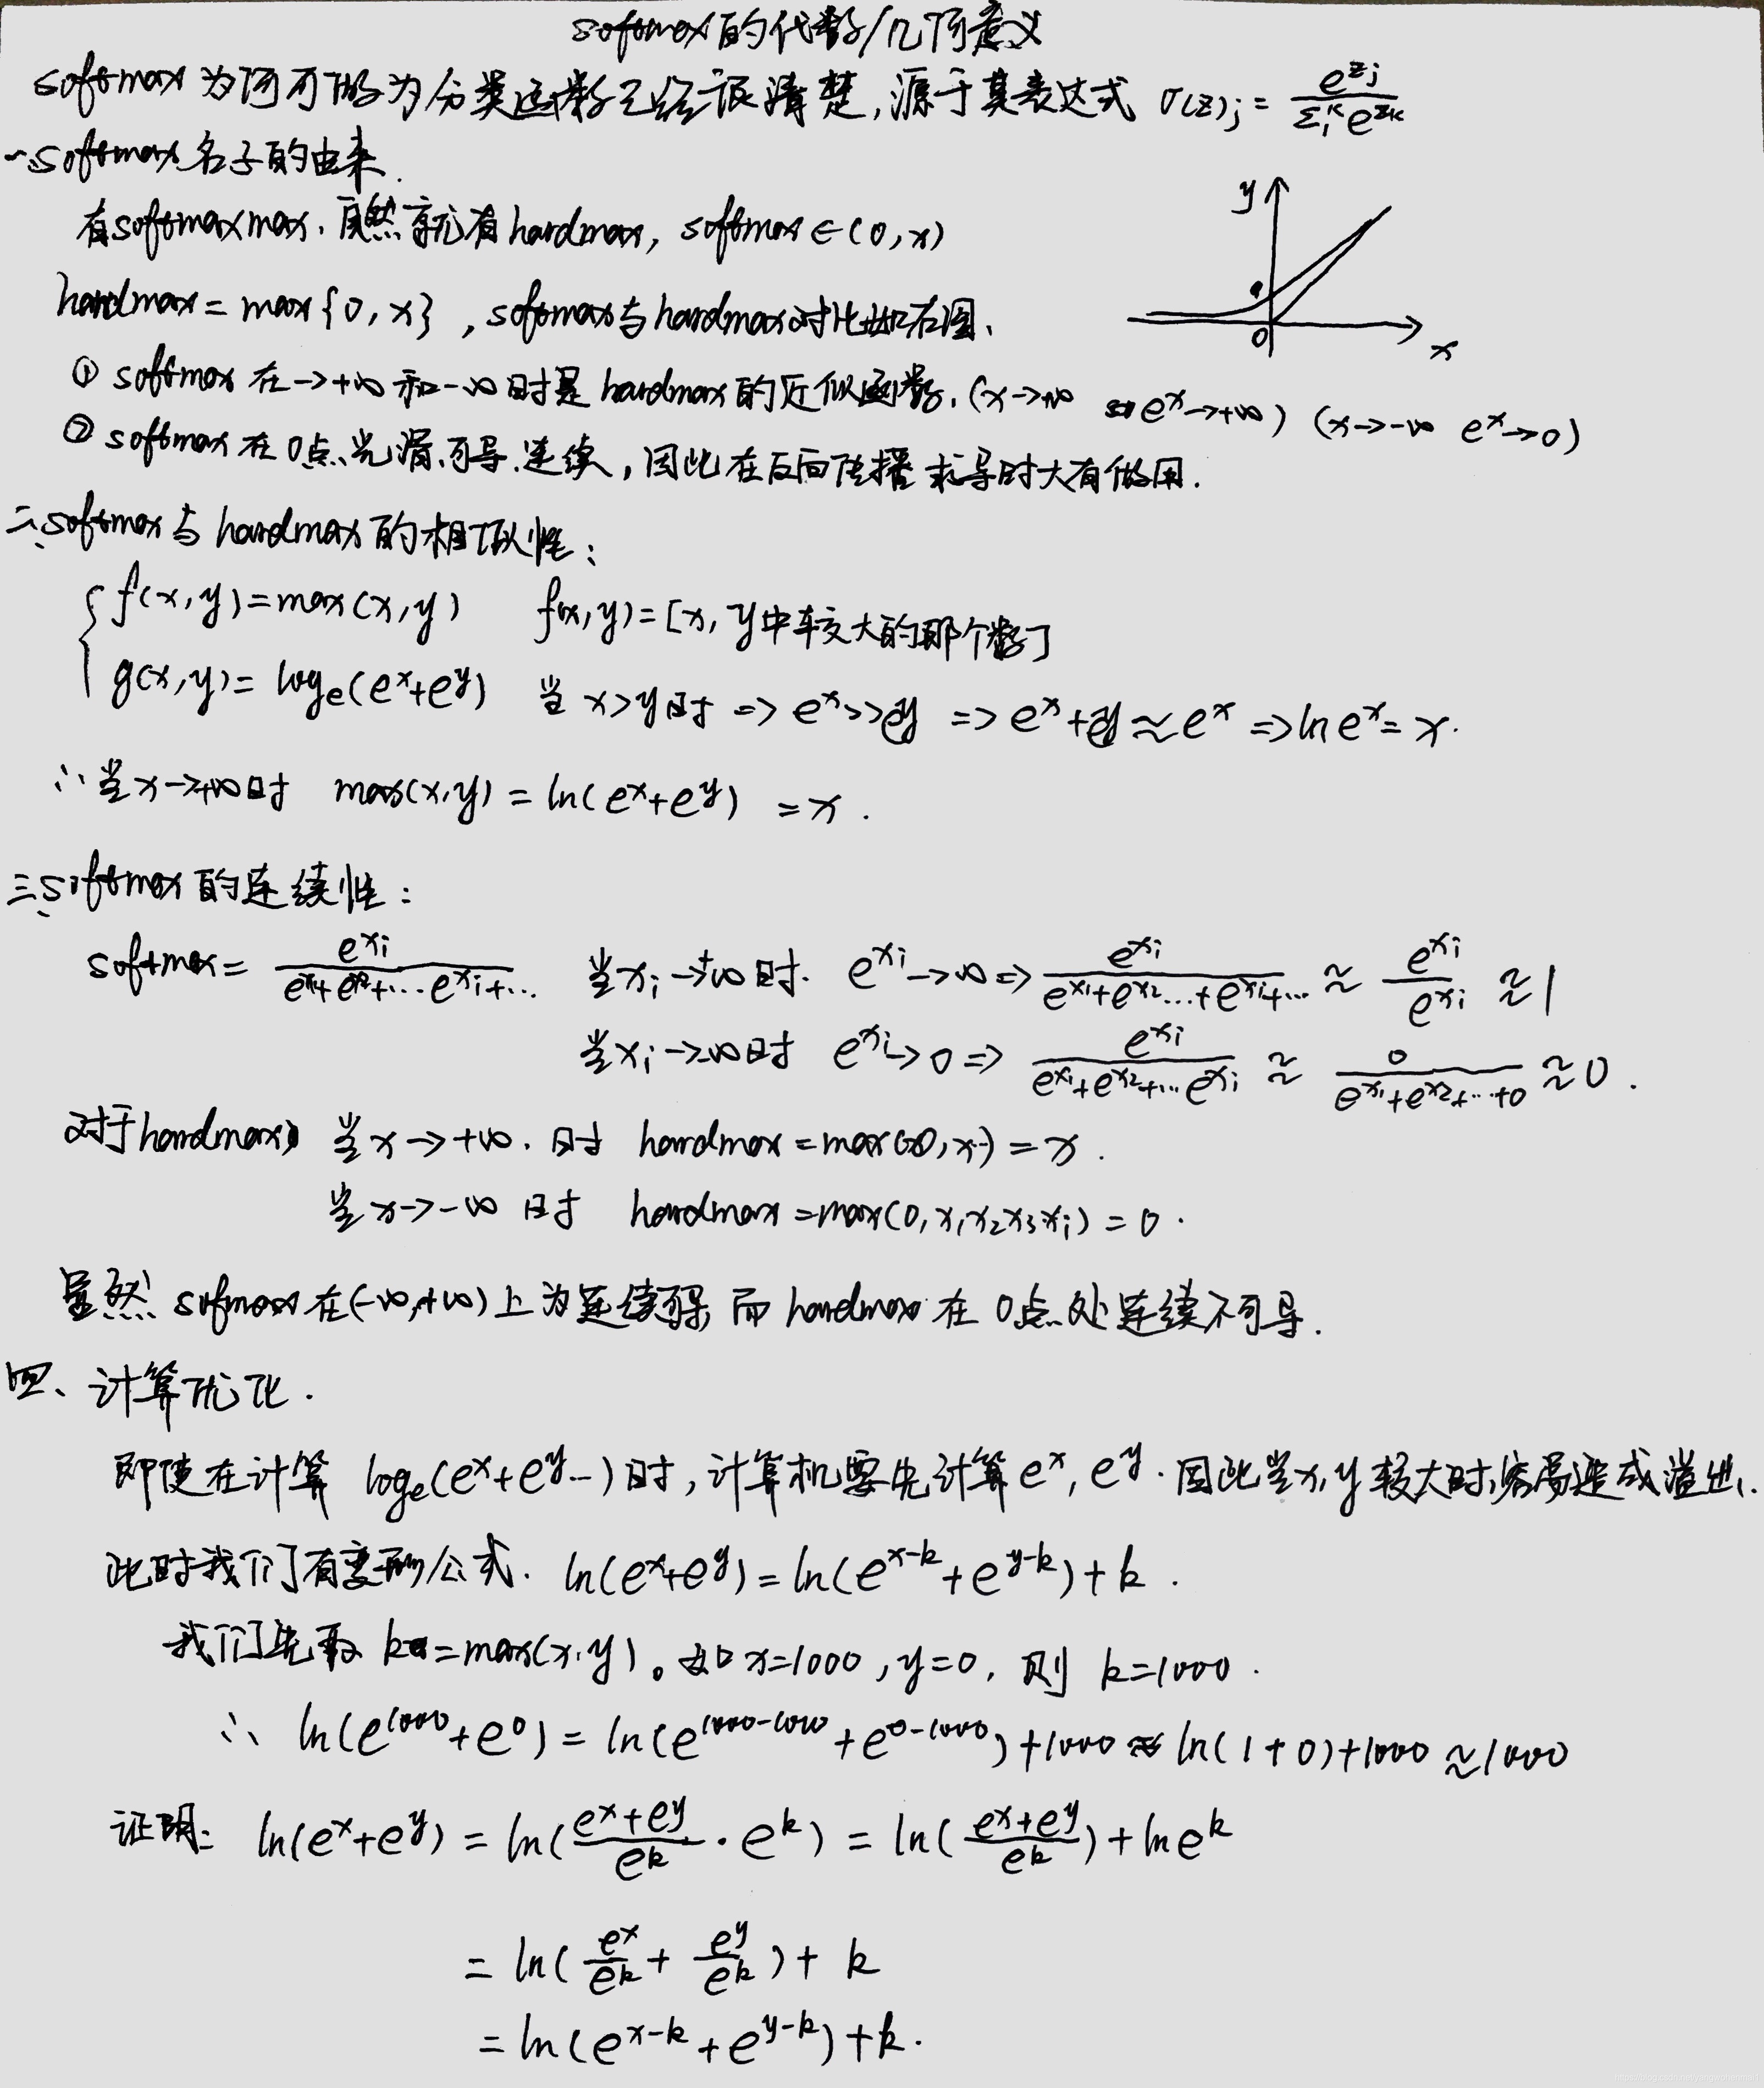 softmax的代数/几何意义
softmax为何可做为分类函数已经很清楚,源于其表达式 σ(z)j = e^zj / Σi^K e^zk
一、softmax名子的由来.
有softmaxmax,自然就有hardmax, softmax∈(0,x)
y
hardmax = max{0,x} ,softmax与hardmax对比如右图、
0
x
① softmax在→+∞和-∞时是hardmax的近似函数.(x→+∞ e^x→+∞) (x→-∞ e^x→0)
② softmax在0点光滑、可导、连续,因此在反向传播求导时大有做用.
二、softmax与hardmax的相似性:
{ f(x,y)=max(x,y) f(x,y)=[x,y中较大的那个数]
g(x,y)= log_e(e^x+e^y) 当x>y时 => e^x>>e^y => e^x+e^y≈e^x => ln e^x = x.
∴当x→+∞时 max(x,y) = ln(e^x+e^y) = x .
三、softmax的连续性:
softmax = e^xi / e^x1+e^x2+…e^xi+… 当xi→+∞时. e^xi→∞ => e^xi / e^x1+e^x2…+e^xi+… ≈ e^xi / e^xi ≈ 1
当xi→-∞时 e^xi→0 => e^xi / e^x1+e^x2+…e^xi ≈ 0 / e^x1+e^x2+…+0 ≈ 0 .
对于hardmax 当x→+∞.时 hardmax = max(0,x) = x .
当x→-∞时 hardmax = max(0,x1x2x3xi) = 0 .
显然 sofmax在(-∞,+∞)上为连续可导,而hardmax在0点处连续不可导.
四、计算优化.
即使在计算 log_e(e^x+e^y…)时,计算机要先计算e^x,e^y.因此当x,y较大时,容易造成溢出.
此时我们有变形公式. ln(e^x+e^y) = ln(e^x-k + e^y-k) + k .
我们先取 k=max(x,y)。如x=1000,y=0,则 k=1000 .
∴ ln(e^1000+e^0) = ln(e^1000-1000 + e^0-1000) + 1000 ≈ ln(1+0)+1000 ≈ 1000
证明: ln(e^x+e^y) = ln( e^x+e^y / e^k · e^k ) = ln( e^x+e^y / e^k ) + ln e^k
= ln( e^x / e^k + e^y / e^k ) + k
= ln(e^x-k + e^y-k) + k.